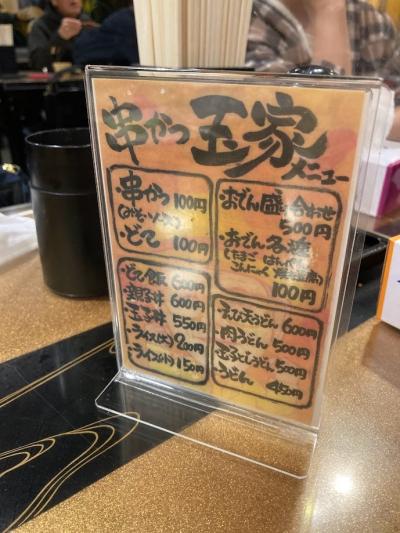 串かつ 玉家
メニュー
串かつ 100円
(みそ・ソース)
・どて 100円
・おでん盛り合わせ
500円
・おでん各種
(たまご はんぺん
こんにゃく
100円
・どて飯 600円
・親子丼 600円
・玉子丼 550円
・ライス(大) 200円
・ライス(小) 150円
・えび天うどん 600円
・肉うどん 500円
・玉子とじうどん 500円
・うどん 450円